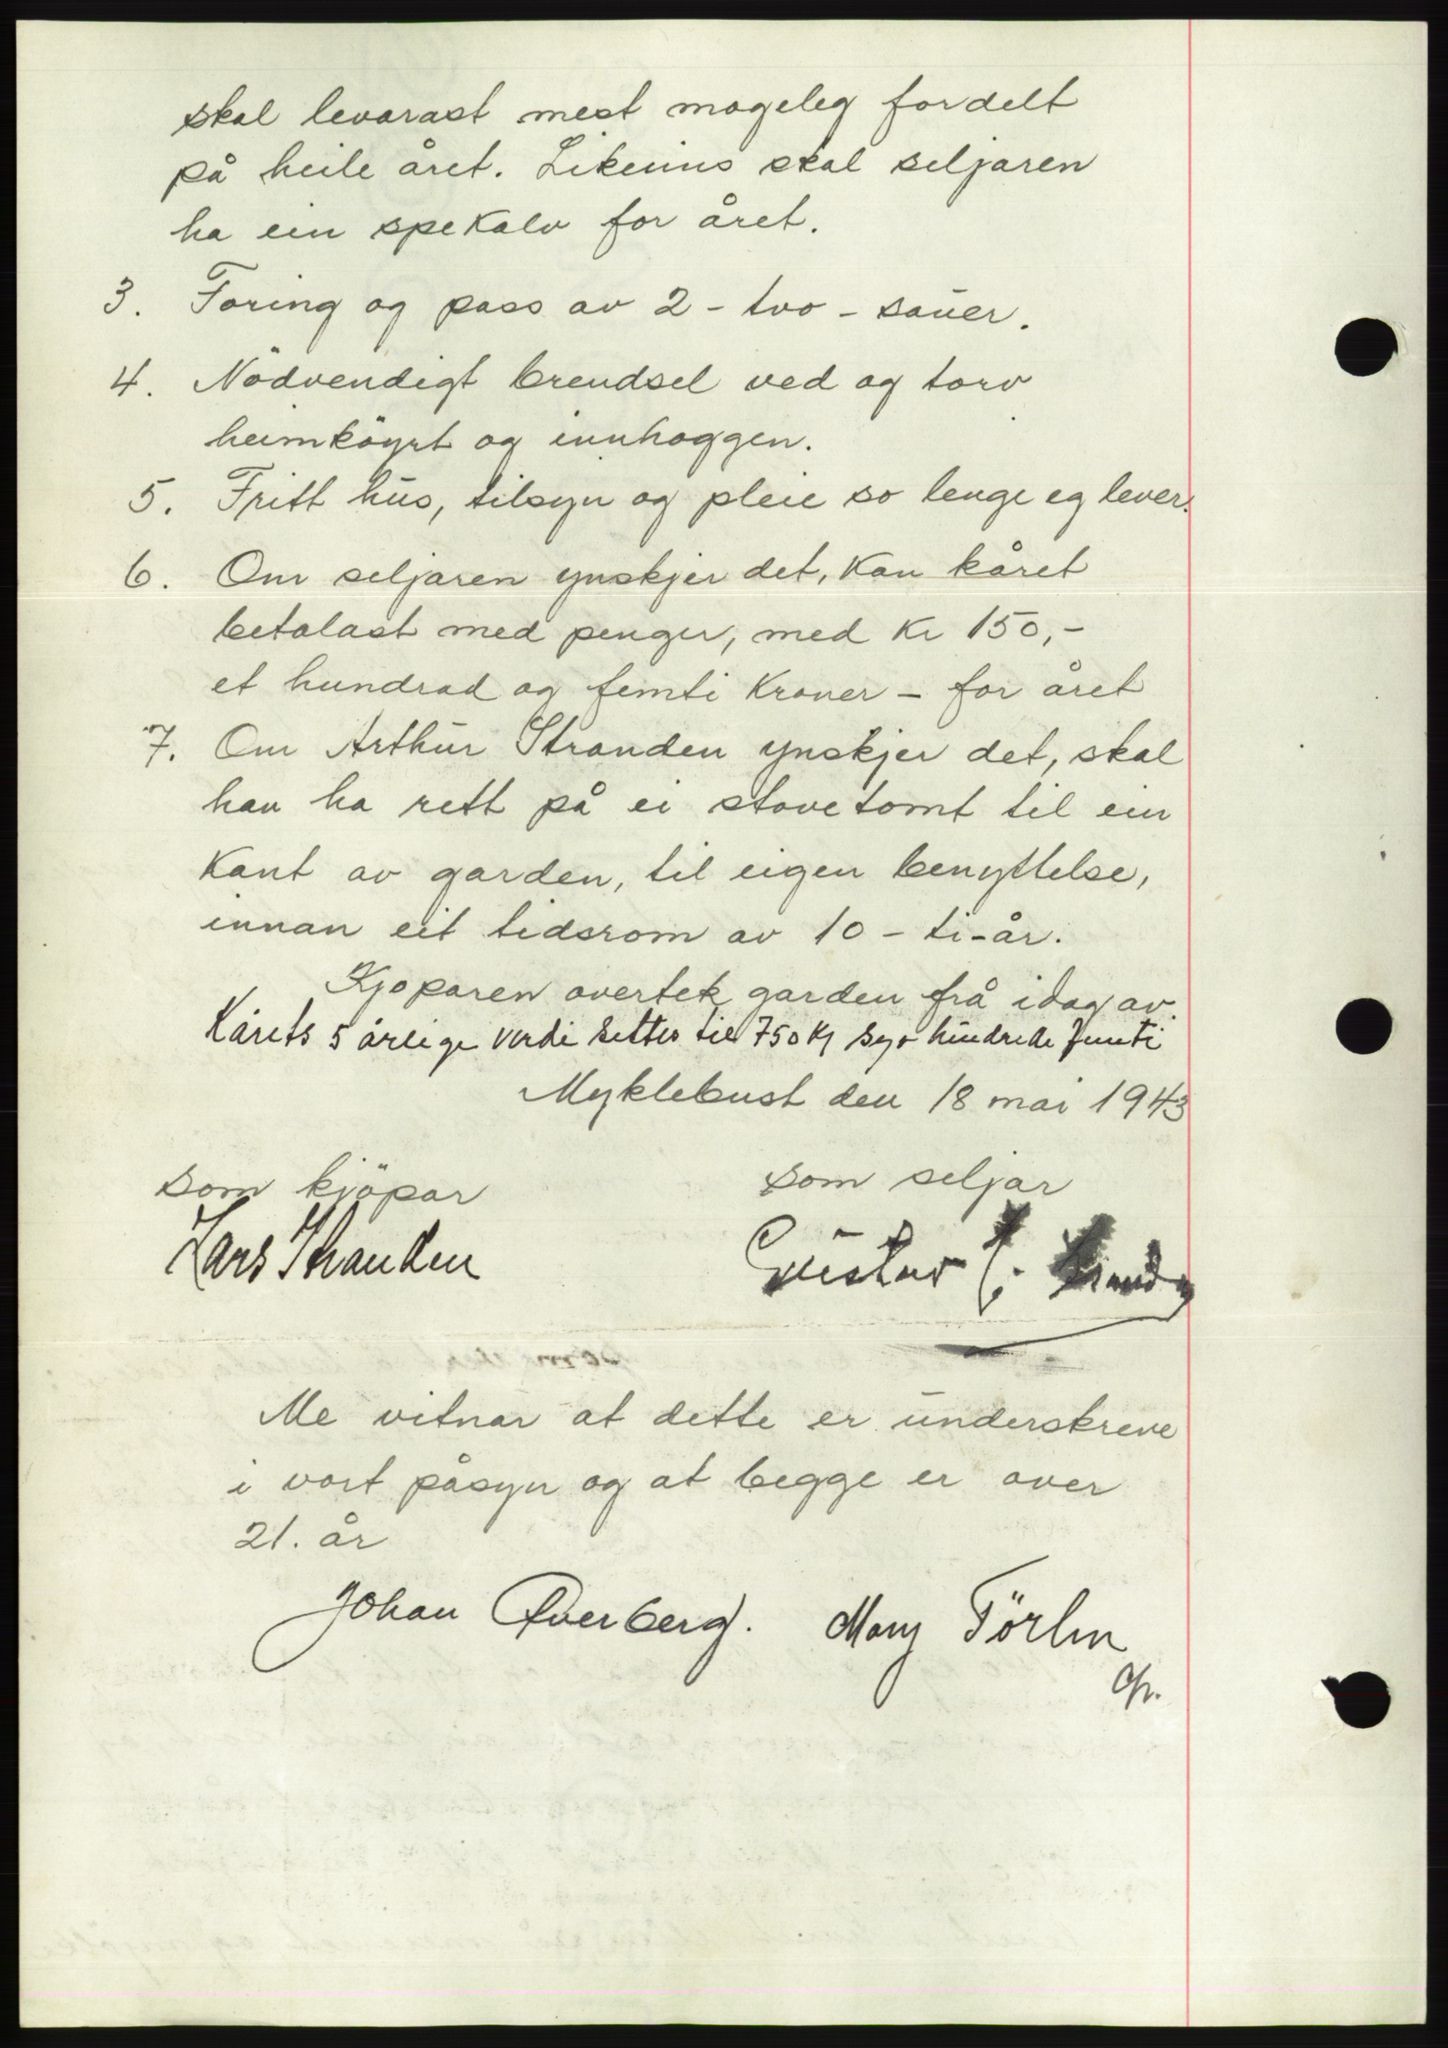 skal levarast mest mogeleg fordelt
på heile året. Likeins skal seljaren
ha ein spekalv for året.
3. Foring og pass av 2 - tvo - sauer.
4. Nödvendigt brendsel ved og torv
heimköyrt og innhoggen.
5. Fritt hus, tilsyn og pleie so lenge eg lever.
6. Om seljaren ynskjer det, kan kåret
betalast med penger, med kr 150,-
et hundrad og femti kroner - for året
7. Om Arthur Stranden ynskjer det, skal
han ha rett på ei stovetomt til ein
kant av garden, til eigen benyttelse,
innan eit tidsrom av 10 - ti-år.
Kjoparen overtek garden frå idag av.
Kårets 5 årlige verdi settes til 750 Kr syv hundrede femti
Myklebust den 18 mai 1943
som kjöpar
som seljar
Lars Stranden
Gustav
Me vitnar at dette er underskreve
i vort påsyn og at begge er over
21. år
Johan Överberg. Mary Förlin